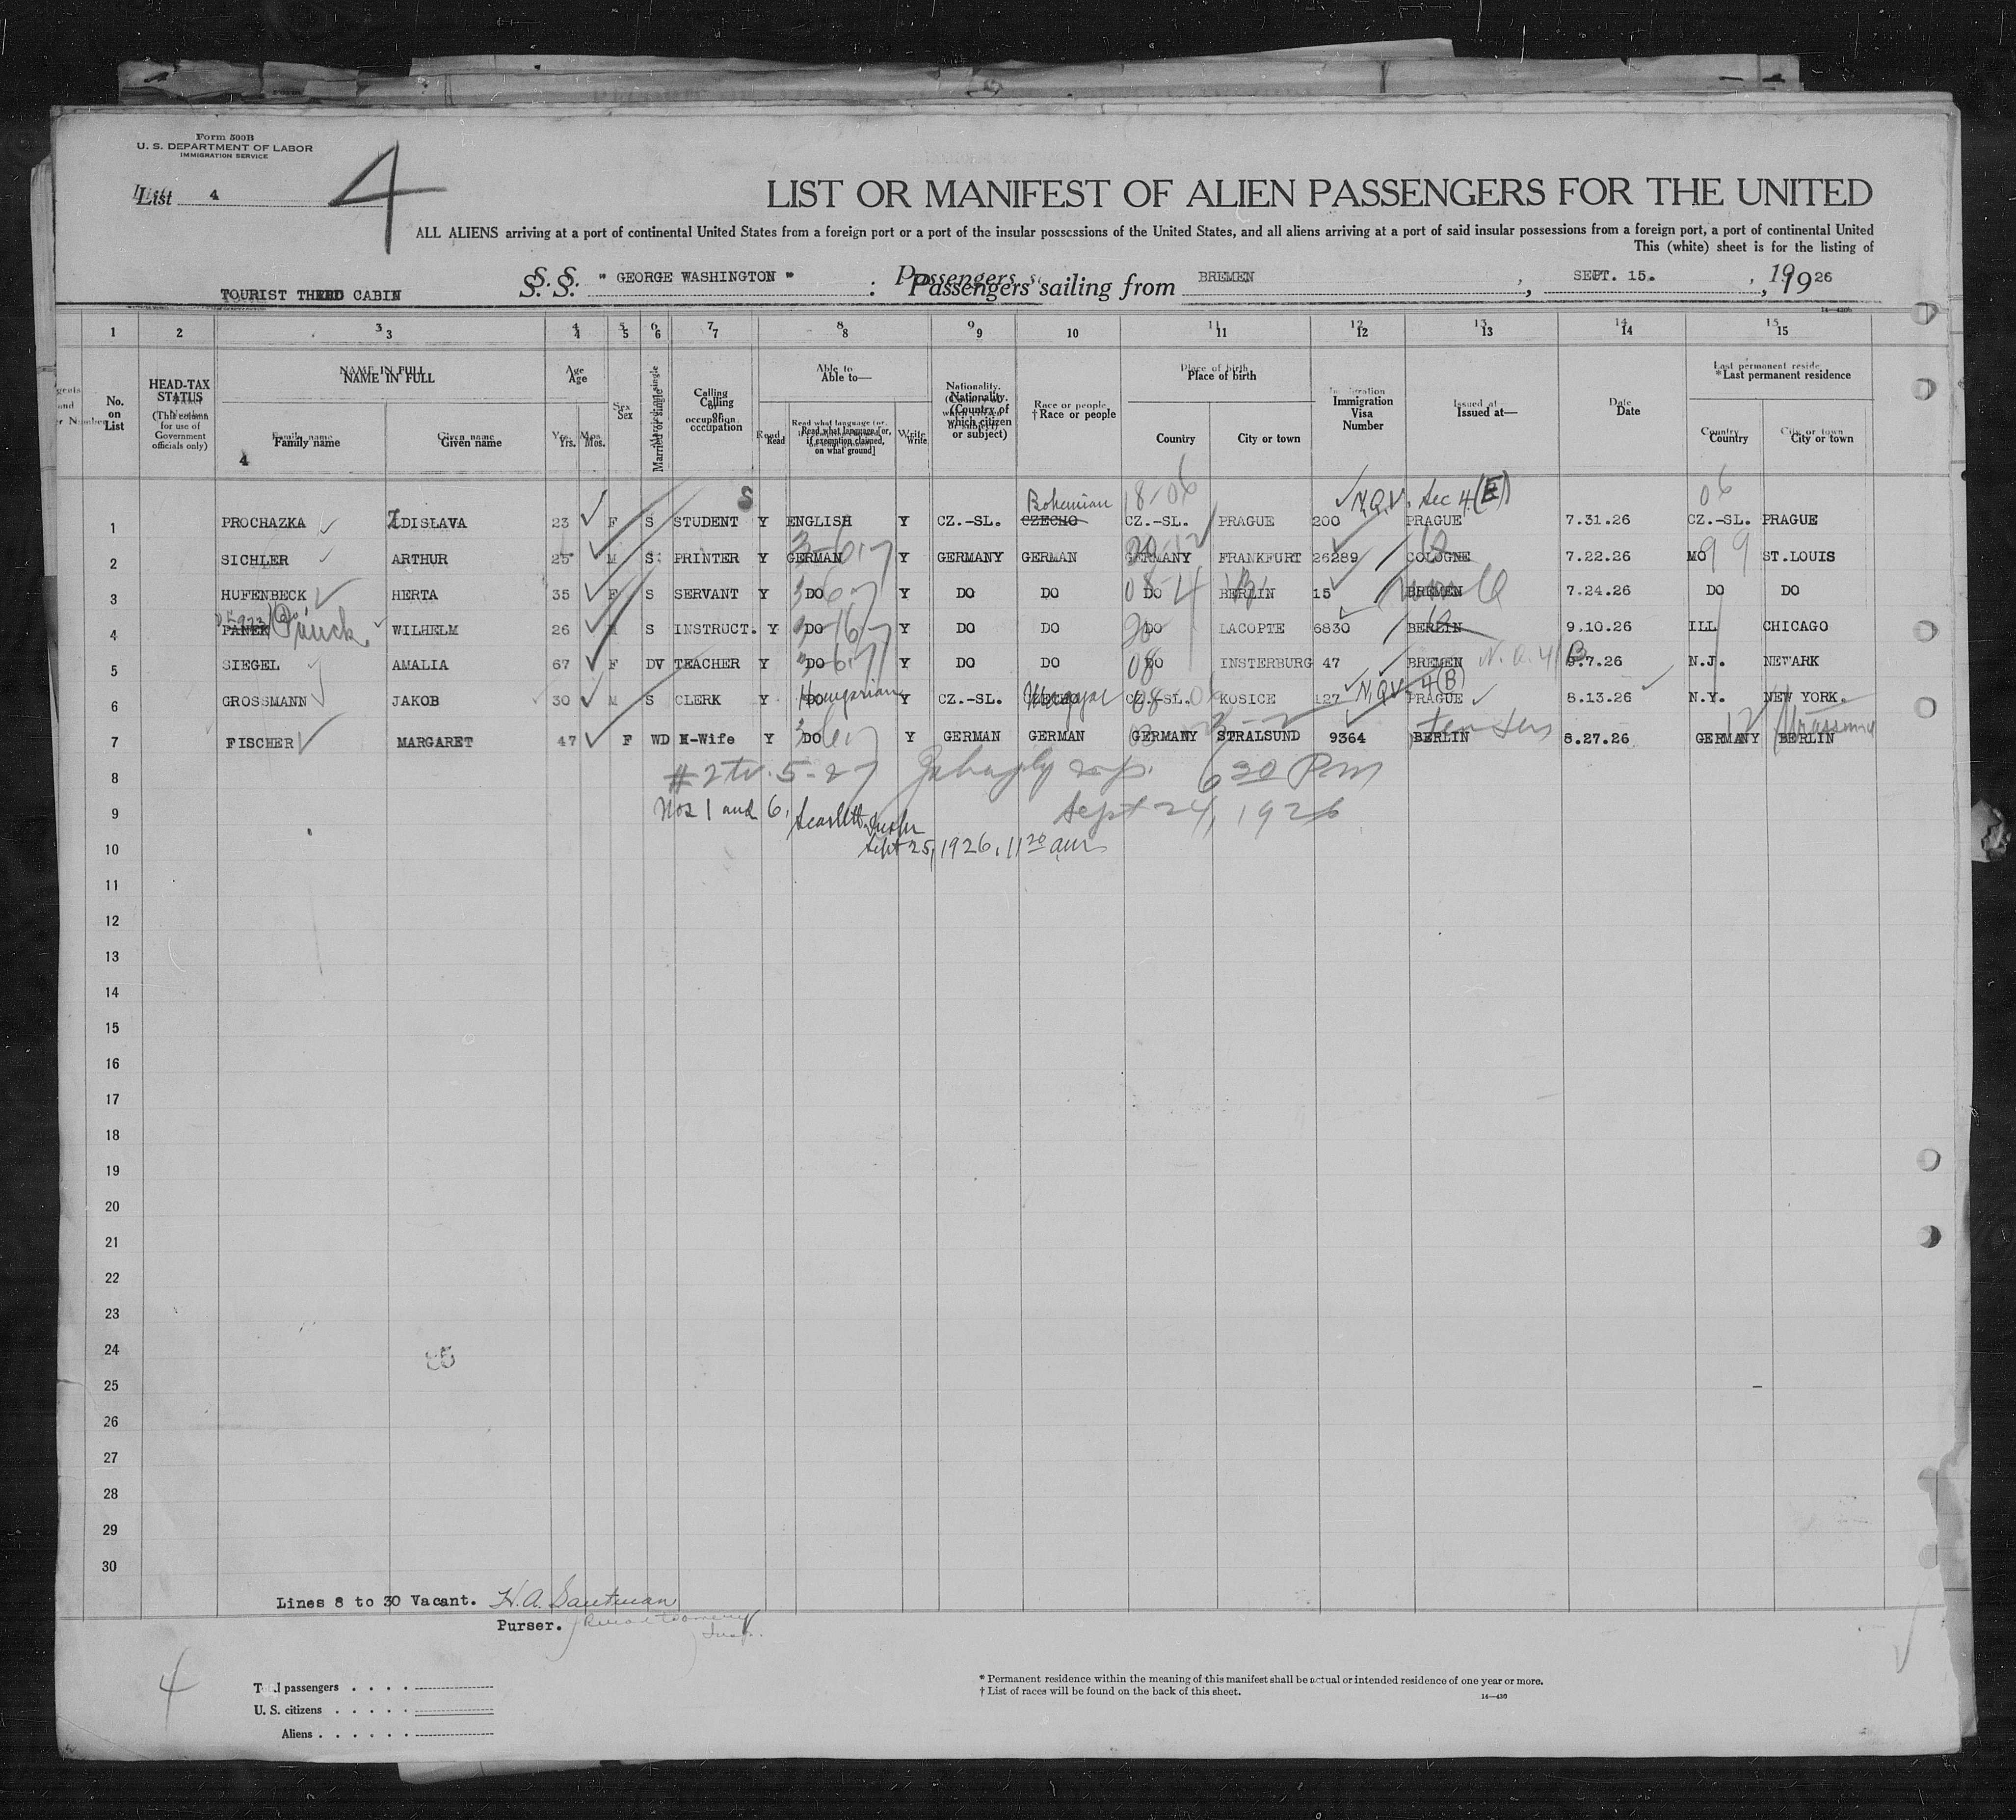 Form 500B
U. S. DEPARTMENT OF LABOR
IMMIGRATION SERVICE
List 4
4
LIST OR MANIFEST OF ALIEN PASSENGERS FOR THE UNITED
ALL ALIENS arriving at a port of continental United States from a foreign port or a port of the insular possessions of the United States, and all aliens arriving at a port of said insular possessions from a foreign port, a port of continental United
This (white) sheet is for the listing of
TOURIST THIRD CABIN S. S. " GEORGE WASHINGTON " : Passengers sailing from BREMEN , SEPT. 15. , 1926
14—420b
1 2 3 4 5 6 7 8 9 10 11 12 13 14 15
No. on List
HEAD-TAX STATUS (This column for use of Government officials only)
NAME IN FULL Family name Given name
4
Age Yrs. Mos.
Sex
Married or single
Calling or occupation
Able to— Read Read what language [or, if exemption claimed, on what ground] Write
Nationality. (Country of which citizen or subject)
†Race or people
Place of birth Country City or town
Immigration Visa Number
Issued at—
Date
*Last permanent residence Country City or town
S Bohemian 18-06 N.Q.V. Sec 4(E) 06
1 PROCHAZKA ZDISLAVA 23 F S STUDENT Y ENGLISH Y CZ.-SL. CZECHO CZ.-SL. PRAGUE 200 PRAGUE 7.31.26 CZ.-SL. PRAGUE
2 SICHLER ARTHUR 25 M S PRINTER Y GERMAN Y GERMANY GERMAN GERMANY FRANKFURT 26289 COLOGNE 7.22.26 MO 99 ST.LOUIS
3 HUFENBECK HERTA 35 F S SERVANT Y DO Y DO DO DO BERLIN 15 BREMEN 7.24.26 DO DO
4 PANEK WILHELM 26 M S INSTRUCT. Y DO Y DO DO DO LACOPTE 6830 BERLIN 9.10.26 ILL CHICAGO
5 SIEGEL AMALIA 67 F DV TEACHER Y DO Y DO DO DO INSTERBURG 47 BREMEN 9.7.26 N.J. NEWARK
N.Q.V. 4(B)
6 GROSSMANN JAKOB 30 M S CLERK Y DO Hungarian Y CZ.-SL. CZECHO Magyar CZ.-SL. KOSICE 127 PRAGUE 8.13.26 N.Y. NEW YORK.
7 FISCHER MARGARET 47 F WD H-Wife Y DO Y GERMAN GERMAN GERMANY STRALSUND 9364 BERLIN 8.27.26 GERMANY BERLIN
8 6 30 PM
9 Nos 1 and 6, Sept 24, 1926
10 Sept 25, 1926, 11 20 am
11
12
13
14
15
16
17
18
19
20
21
22
23
24
25
26
27
28
29
30
Lines 8 to 30 Vacant. H. A.
Purser.
4
Total passengers
U. S. citizens
Aliens
* Permanent residence within the meaning of this manifest shall be actual or intended residence of one year or more.
† List of races will be found on the back of this sheet.
14—430